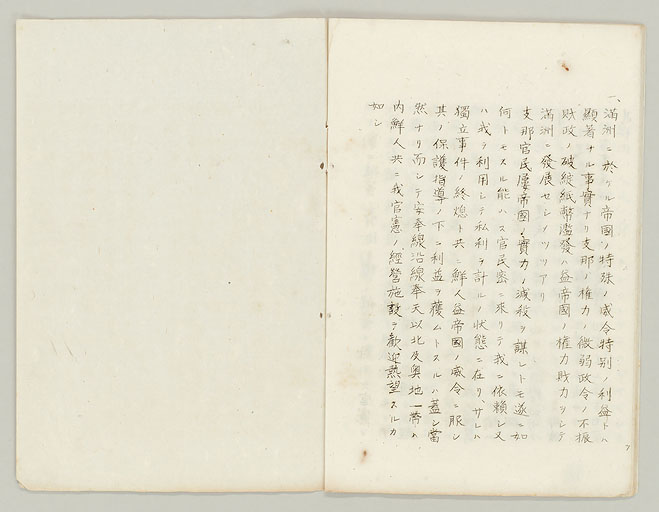 一、滿洲ニ於ケル帝國ノ特殊ノ威令特別ノ利益トハ
顯著ナル事實ナリ支那ノ權力ノ微弱政令ノ不振
財政ノ破綻紙幣濫發ハ益帝國ノ權力財力ヲシテ
滿洲ニ發展セシメツツアリ
支那官民屢帝國ノ實力ノ減殺ヲ謀レトモ遂ニ如
何トモスル能ハス官民密ニ來リテ我ニ依賴シ又
ハ我ヲ利用シテ私利ヲ計ルノ狀態ニ在リ、サレハ
獨立事件ノ終熄ト共ニ鮮人益帝國ノ威令ニ服シ
其ノ保護指導ノ下ニ利益ヲ獲ムトスルハ蓋シ當
然ナリ而シテ安奉線沿線奉天以北及奧地一帶ハ
內鮮人共ニ我官憲ノ經營施設ヲ歡迎熱望スルカ
如シ